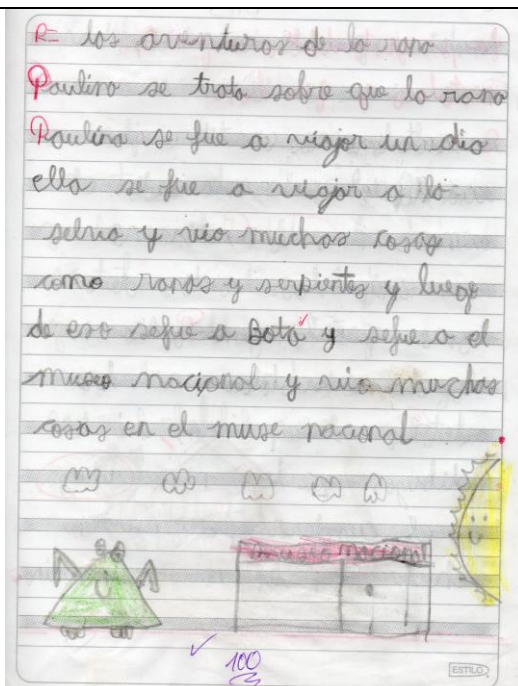 R= los aventuros de la rana
Paulina se trata sobre que la rana
Paulina se fue a viajar un dia
ella se fue a viajar a la
selva y vio muchas cosas
como ranas y serpientes y luego
de eso sefue a Bota y sefue a el
museo nacional y vio muchas
cosas en el muse nacional
museo nacional
100
ESTILO